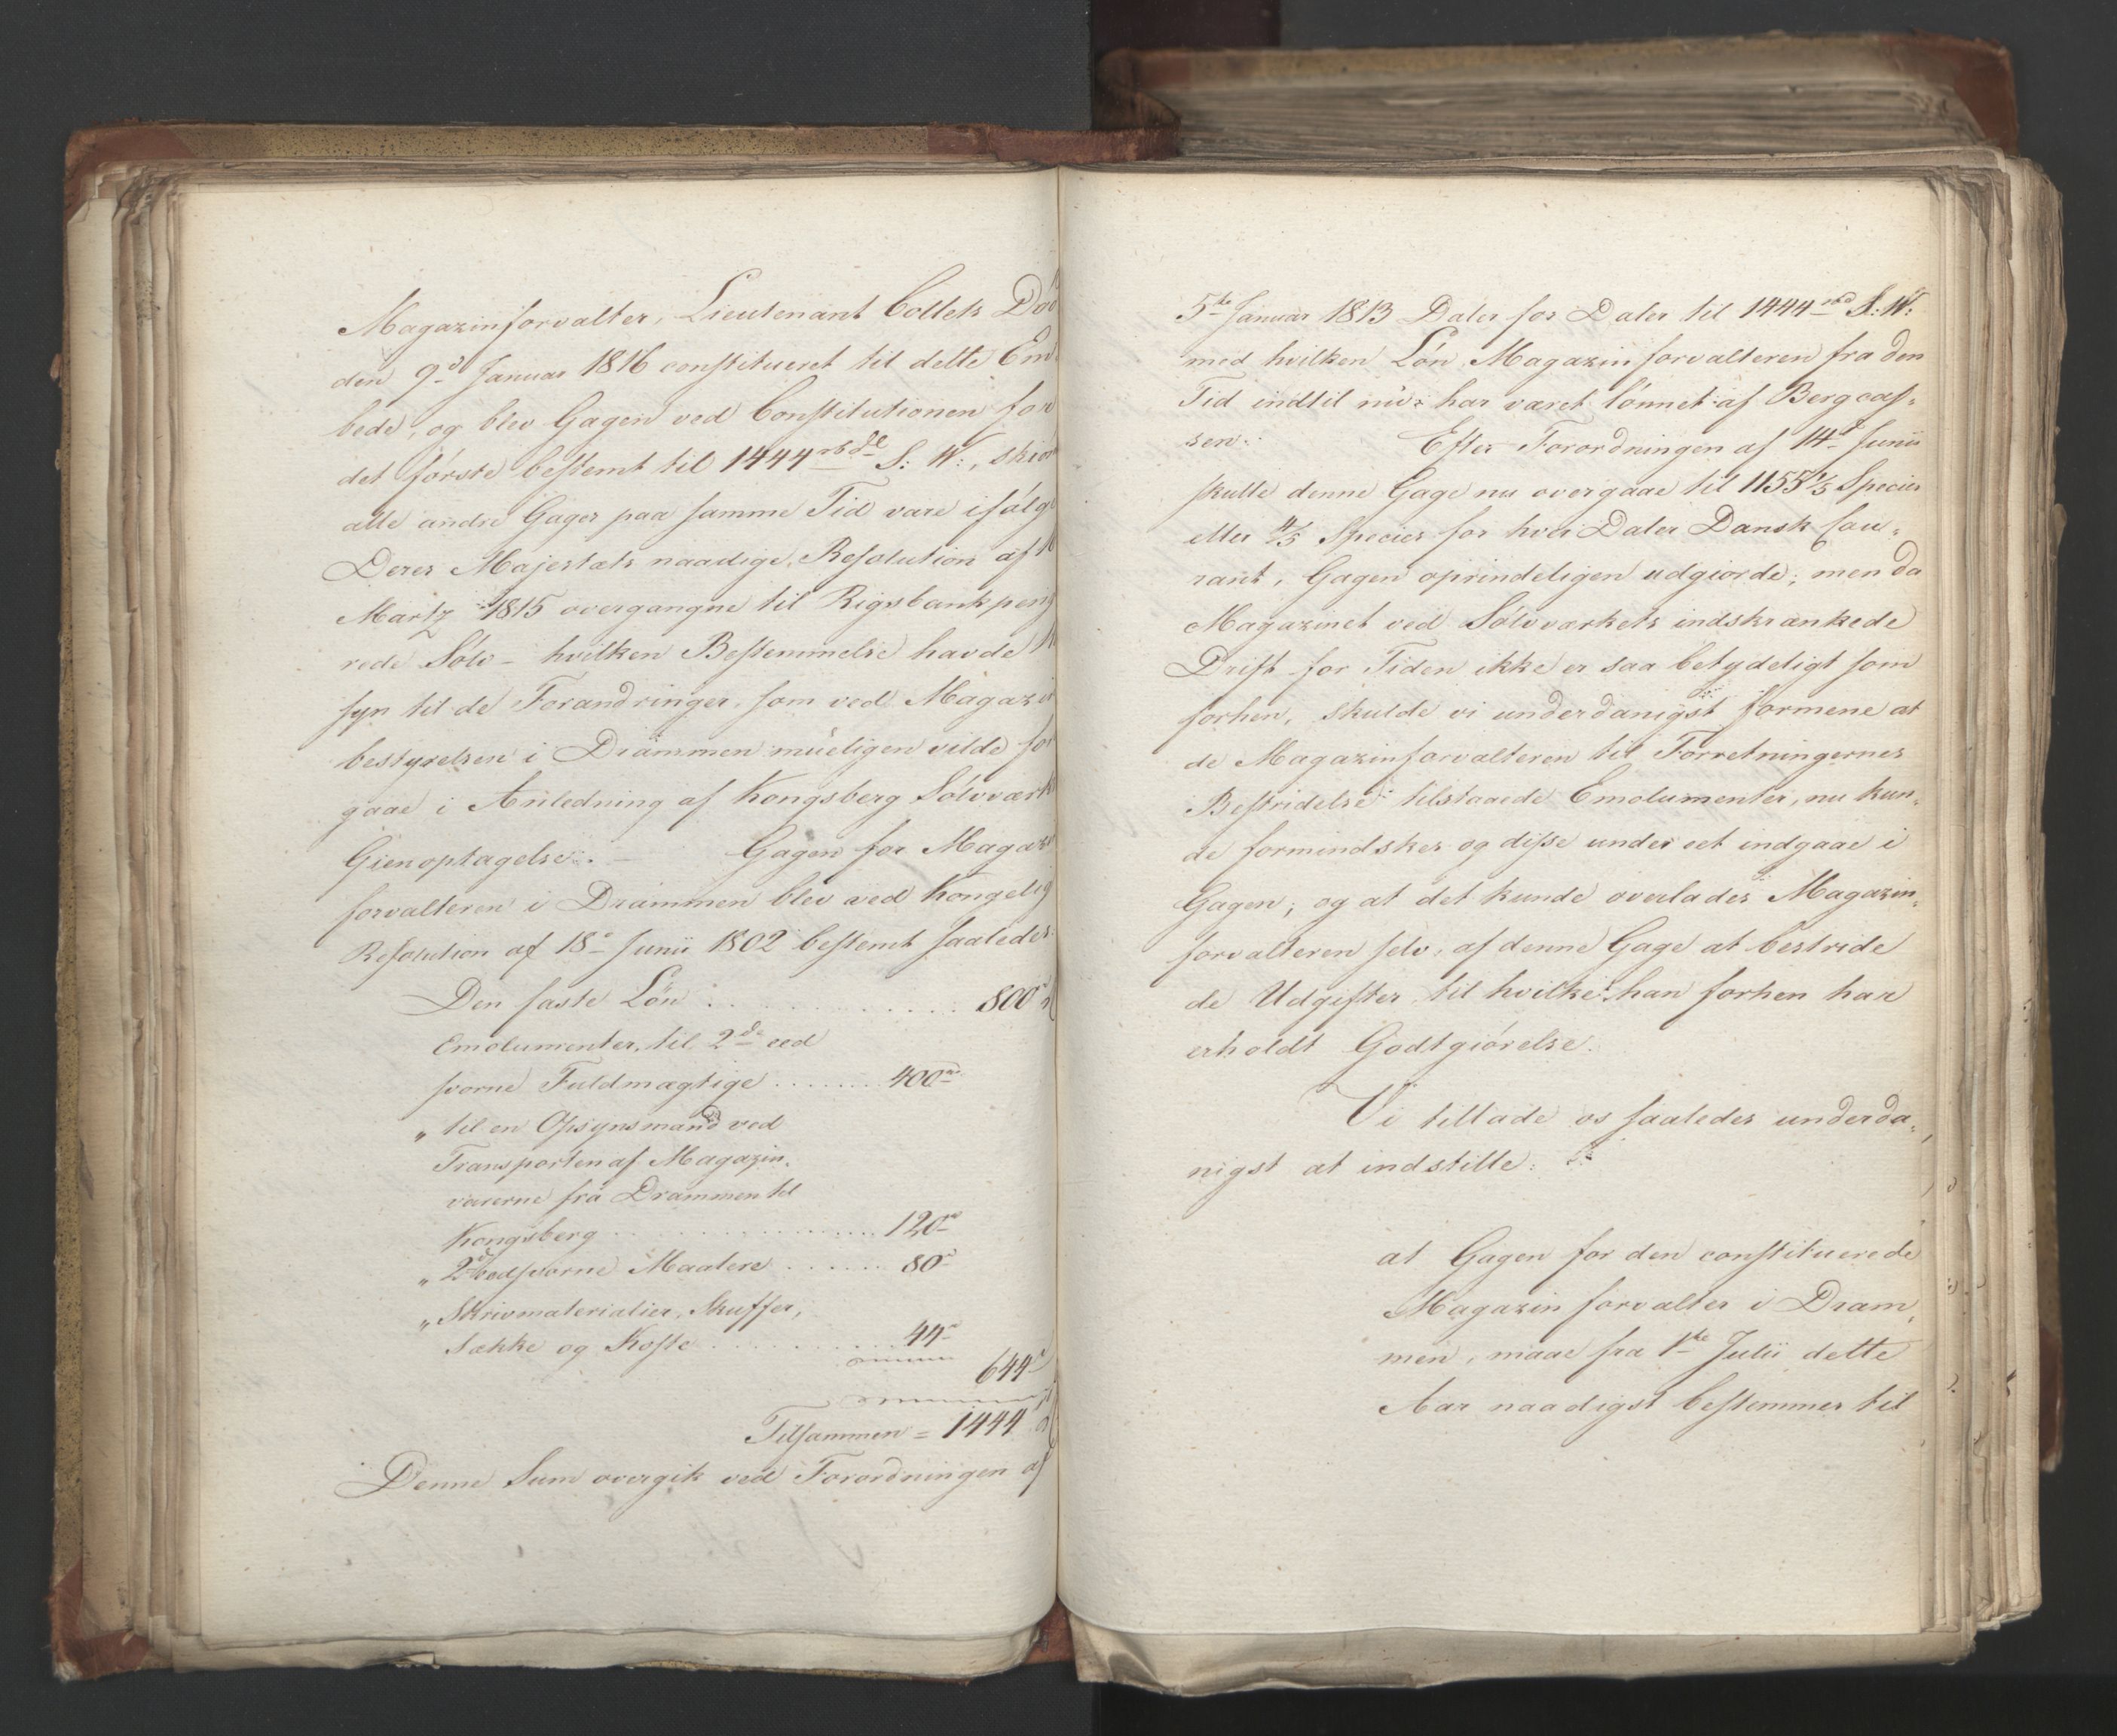 Magazinforvalter, Lieutenant Collets Dö
den 9d Januar 1816 constitueret til dette Em
bede, og blev Gagen ved Constitutionen for
det förste bestemt til 1444 rbdl S: W:, skiön
alle andre Gager paa samme Tid vare ifölg
Deres Majestæts naadige Resolution af
Martz 1815 overgangne til Rigsbankpeng
rede Sölv - hvilken Bestemmelse havde H
syn til de Forandringer, som ved Magazin
bestyrelsen i Drammen müeligen vilde for
gaae i Anledning af Kongsberg Sölvværk
Gienoptagelse. - Gagen for Magazin
forvalteren i Drammen blev ved Kongelig
Resolution af 18d Junii 1802 bestemt saaledes:
Den faste Lön . . . . . . . . . . . . . 800 rd
Emolumenter, til 2de eed
svorne Fuldmægtige . . . . . . . 400 rd
" til en Opsynsmand ved
Transporten af Magazin-
varerne fra Drammen til
Kongsberg . . . . . . . . . . . . . . 120 rd
" 2de eedsvorne Maalere . . . . . . 80 rd
" Skrivmaterialier, Skuffer,
Sække og Koste . . . . . . . . . . 44 rd
644 rd
Tilsammen = 1444 rd
Denne Sum overgik ved Forordningen af
5te Januar 1813 Daler for Daler til 1444 rbd S: W:
med hvilken Lön Magazinforvalteren fra den
Tid indtil nü har været lönnet af Bergcas-
sen. Efter Forordningen af 14d Junii
skulle denne Gage nu overgaae til 1155 1/5 Species
eller 4/5 Species for hver Daler Dansk Cou-
rant, Gagen oprindeligen udgiorde; men da
Magazinet ved Sölvværkets indskrænkede
Drift for Tiden ikke er saa betydeligt som
forhen, skulde vi underdanigst formene at
de Magazinforvalteren til Forretningernes
Bestridelse tilstaaede Emolumenter, nu kun-
de formindskes og disse under eet indgaae i
Gagen; og at det kunde overlades Magazin-
forvalteren selv, af denne Gage at bestride
de Udgifter til hvilke han forhen har
erholdt Godtgiörelse.
Vi tillade os saaledes underda-
nigst at indstille:
at Gagen for den constituerede
Magazinforvalter i Dram-
men, maae fra 1ste Julii dette
Aar naadigst bestemmes til